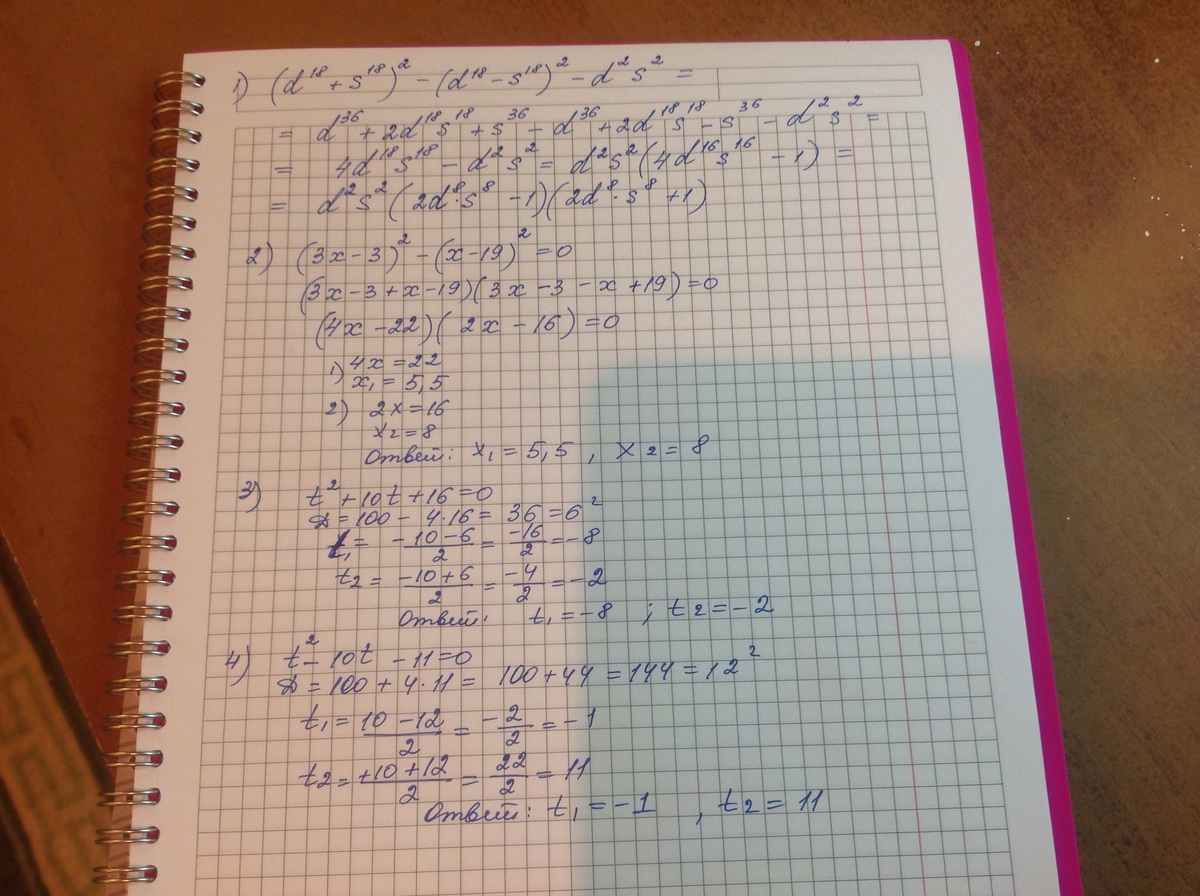 1) (d¹⁸ + s¹⁸)² − (d¹⁸ − s¹⁸)² − d²s² =
= d³⁶ + 2d¹⁸s¹⁸ + s³⁶ − d³⁶ + 2d¹⁸s¹⁸ − s³⁶ − d²s² =
= 4d¹⁸s¹⁸ − d²s² = d²s²(4d¹⁶s¹⁶ − 1) =
= d²s²(2d⁸·s⁸ − 1)(2d⁸·s⁸ + 1)
2) (3x − 3)² − (x − 19)² = 0
(3x − 3 + x − 19)(3x − 3 − x + 19) = 0
(4x − 22)(2x − 16) = 0
1) 4x = 22
x₁ = 5,5
2) 2x = 16
x₂ = 8
Ответ: x₁ = 5,5 , x₂ = 8
3) t² + 10t + 16 = 0
D = 100 − 4·16 = 36 = 6²
t₁ = (−10 − 6)/2 = −16/2 = −8
t₂ = (−10 + 6)/2 = −4/2 = −2
Ответ: t₁ = −8 ; t₂ = −2
4) t² − 10t − 11 = 0
D = 100 + 4·11 = 100 + 44 = 144 = 12²
t₁ = (10 − 12)/2 = −2/2 = −1
t₂ = (+10 + 12)/2 = 22/2 = 11
Ответ: t₁ = −1 , t₂ = 11